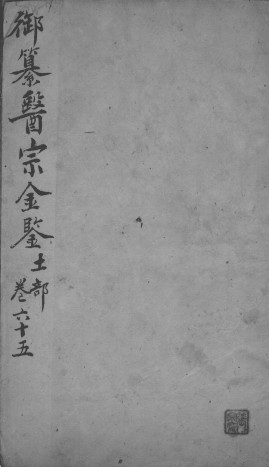 御纂醫宗金鑒土部
卷六十五